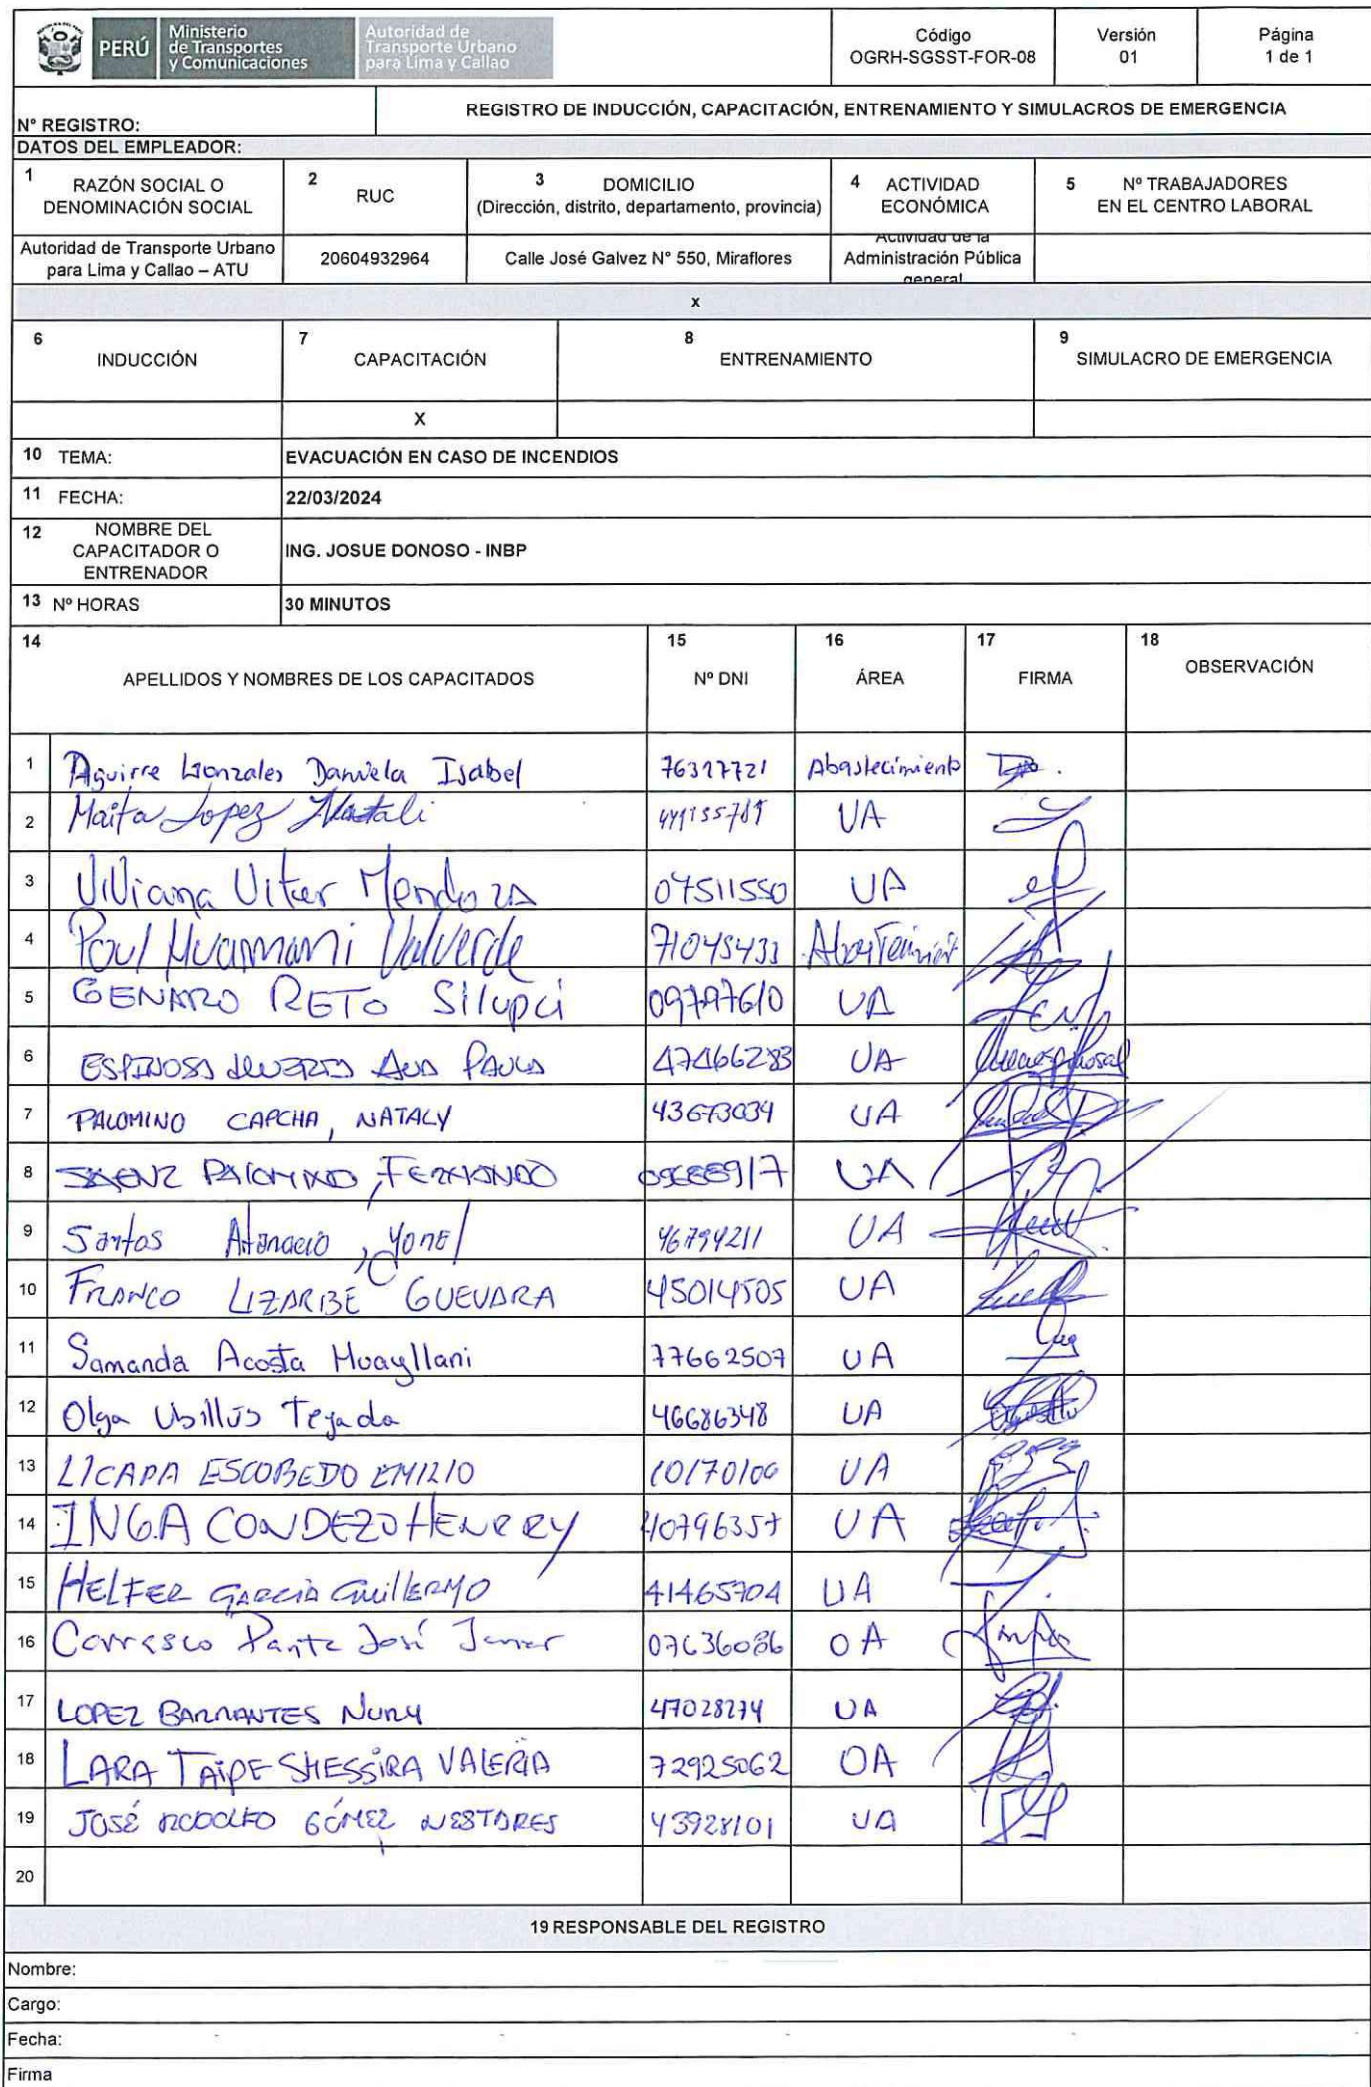 PERÚ
Ministerio
de Transportes
y Comunicaciones
Autoridad de
Transporte Urbano
para Lima y Callao
Código
OGRH-SGSST-FOR-08
Versión
01
Página
1 de 1
N° REGISTRO:
REGISTRO DE INDUCCIÓN, CAPACITACIÓN, ENTRENAMIENTO Y SIMULACROS DE EMERGENCIA
DATOS DEL EMPLEADOR:
1 RAZÓN SOCIAL O
DENOMINACIÓN SOCIAL
2 RUC
3 DOMICILIO
(Dirección, distrito, departamento, provincia)
4 ACTIVIDAD
ECONÓMICA
5 Nº TRABAJADORES
EN EL CENTRO LABORAL
Autoridad de Transporte Urbano
para Lima y Callao – ATU
20604932964
Calle José Galvez N° 550, Miraflores
Actividad de la
Administración Pública
general
x
6 INDUCCIÓN
7 CAPACITACIÓN
8 ENTRENAMIENTO
9 SIMULACRO DE EMERGENCIA
X
10 TEMA: EVACUACIÓN EN CASO DE INCENDIOS
11 FECHA: 22/03/2024
12 NOMBRE DEL
CAPACITADOR O
ENTRENADOR
ING. JOSUE DONOSO - INBP
13 Nº HORAS 30 MINUTOS
14 APELLIDOS Y NOMBRES DE LOS CAPACITADOS
15 Nº DNI
16 ÁREA
17 FIRMA
18 OBSERVACIÓN
1 Aguirre Gonzales Daniela Isabel Abastecimiento
2 Maita Lopez Natali UA
3 Viviana Mendoza 07511550 UA
4 Poul Huamani Valverde 71045433
5 GENARO RETO Silupú 09797610 UA
6 ESPINOSA ANA PAULA 47466283 UA
7 PALOMINO CAPCHA, NATALY 43673039 UA
8 SAENZ PALOMINO, FERNANDO UA
9 Santos Atanacio, Yonel 46794211 UA
10 FRANCO LIZARBE GUEVARA 45014505 UA
11 Samanda Acosta Huayllani 77662507 UA
12 Olga Ubillús Tejada 46686348 UA
13 LICAPA ESCOBEDO EMILIO 10170100 UA
14 INGA CONDEZO HENRRY 40796357 UA
15 HELFER GARCIA GUILLERMO 41465704 UA
16 Carrasco Pante José 07636086 OA
17 LOPEZ BARRANTES NURY 47028274 UA
18 LARA TAIPE SHESSIRA VALERIA 72925062 OA
19 JOSÉ RODOLFO GÓMEZ NESTARES 43928101 UA
20
19 RESPONSABLE DEL REGISTRO
Nombre:
Cargo:
Fecha:
Firma